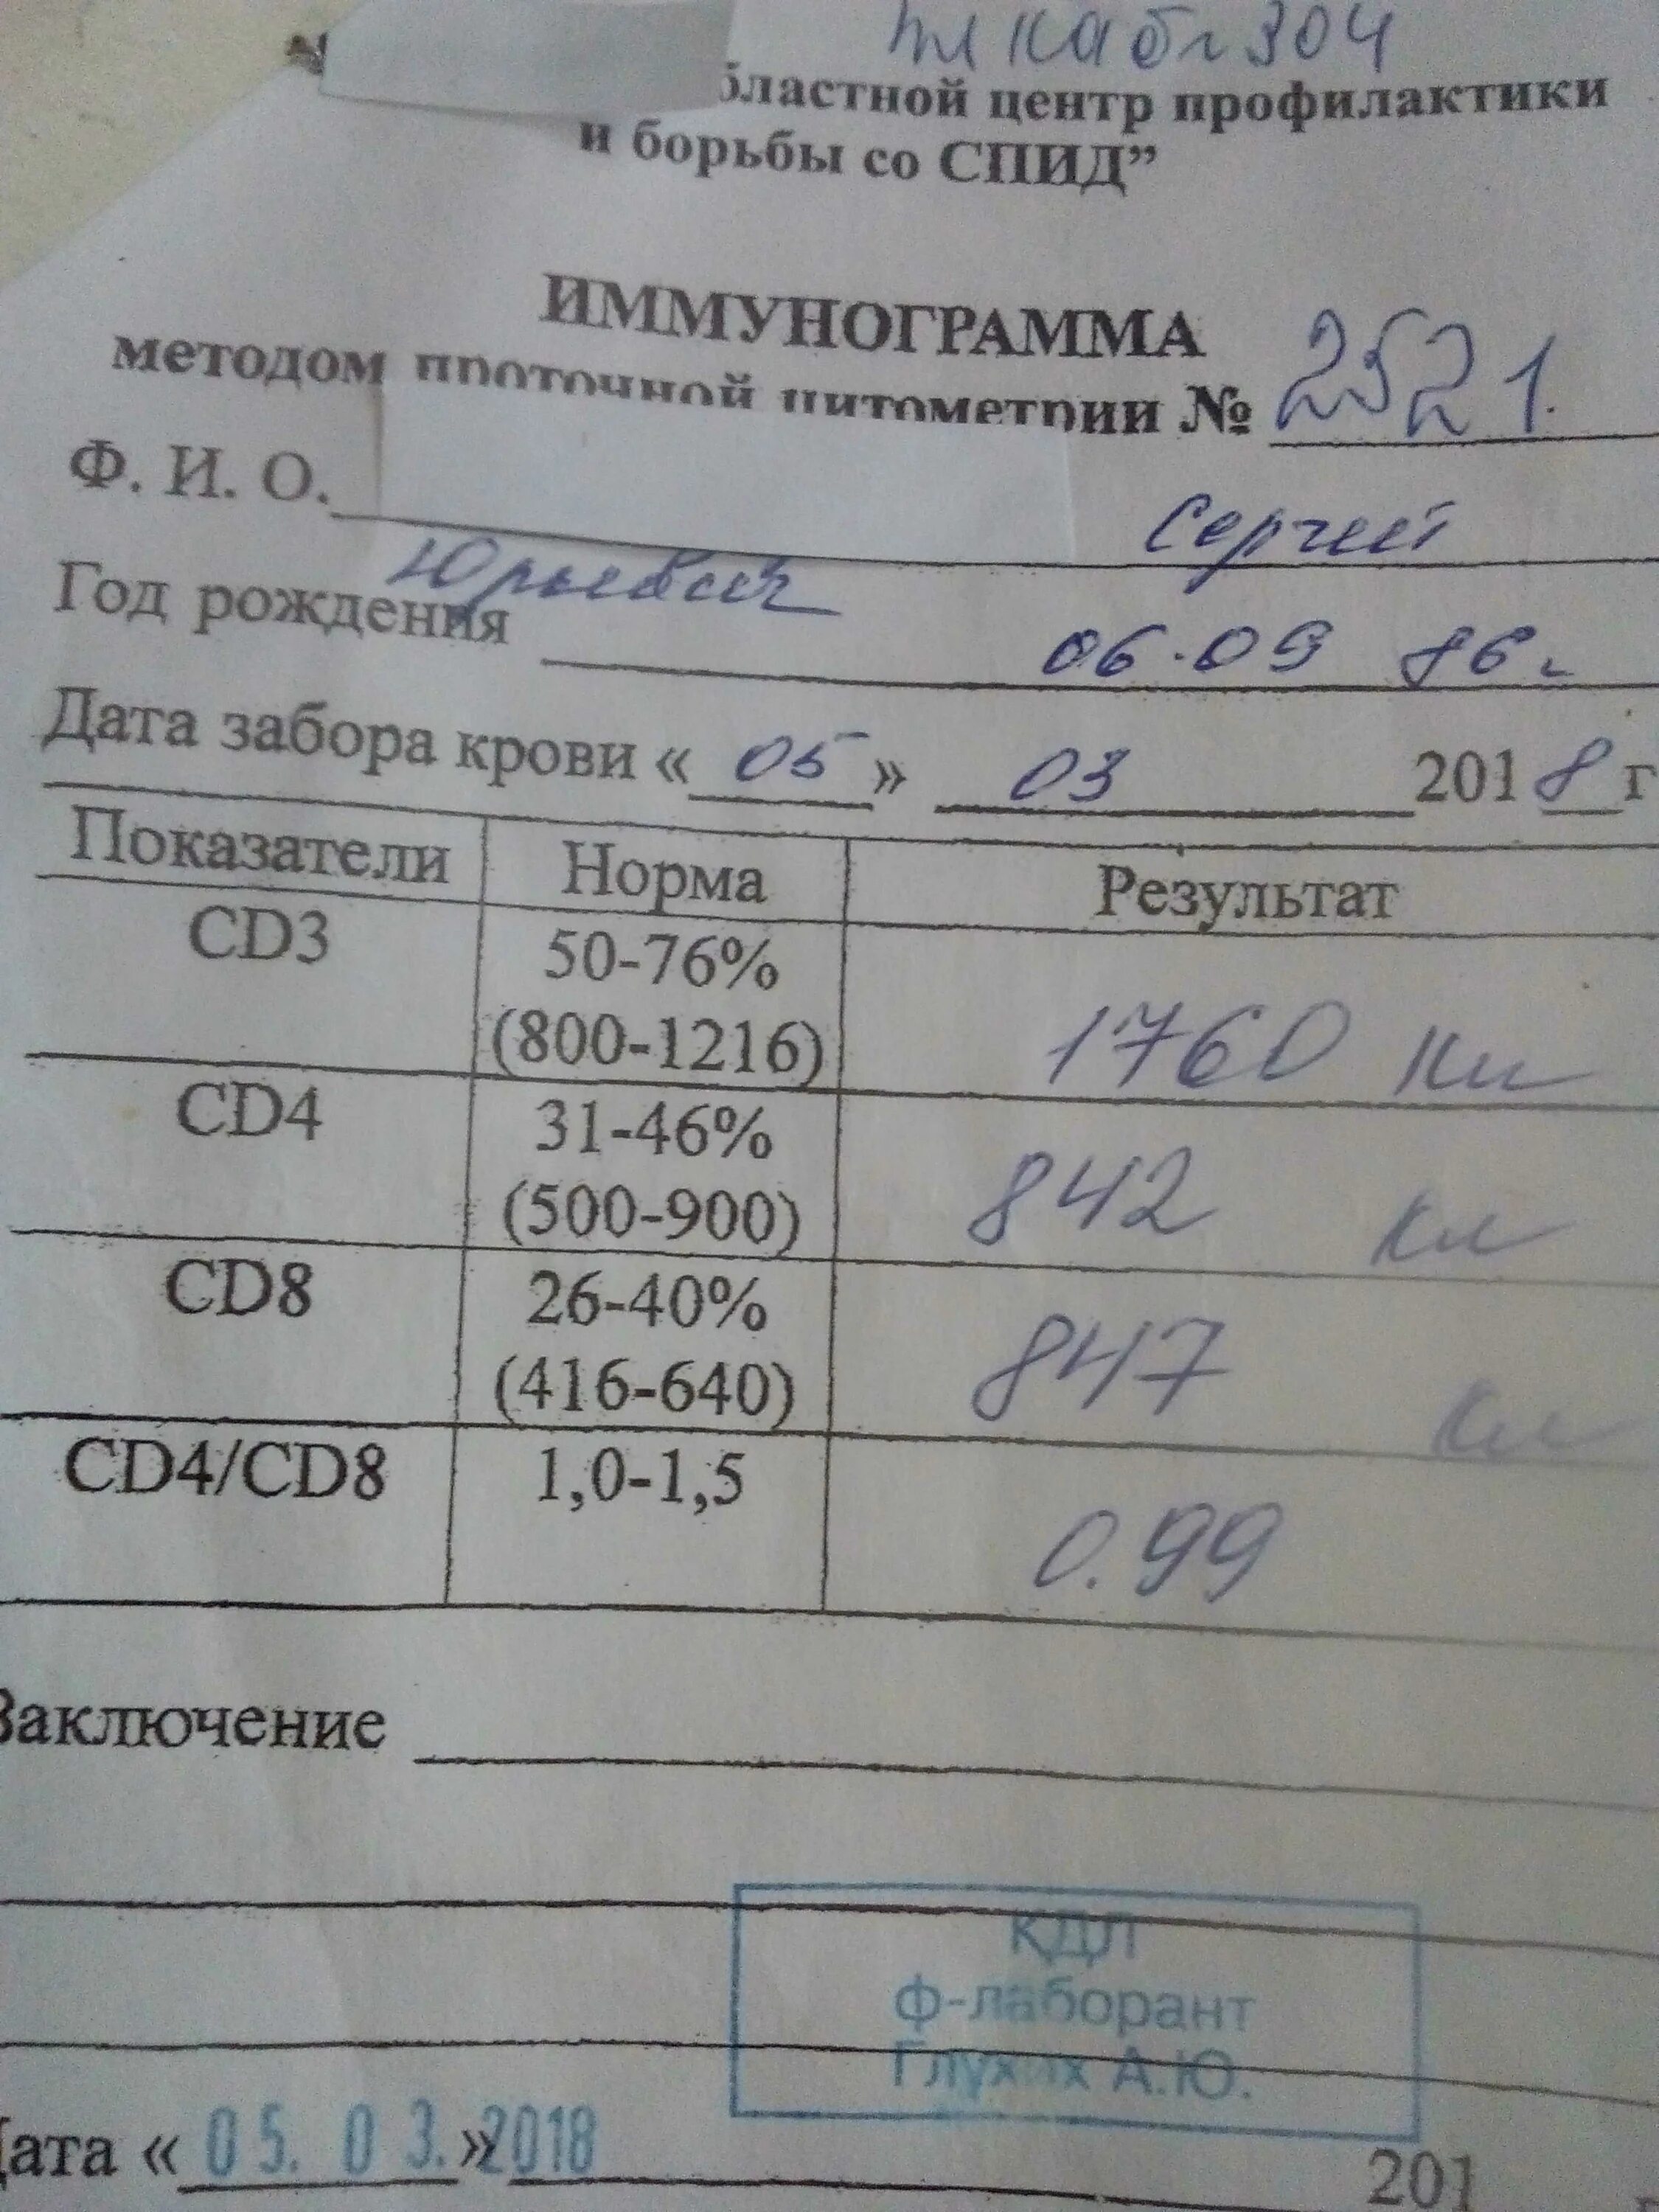 каб 304
бластной центр профилактики
и борьбы со СПИД”
ИММУНОГРАММА
методом проточной цитометрии № 2521.
Ф. И. О. Сергей
Юрьевич
Год рождения 06.09 86г
Дата забора крови « 05 » 03 2018 г
Показатели Норма Результат
CD3 50-76%
(800-1216) 1760 кл
CD4 31-46%
(500-900) 842 кл
CD8 26-40%
(416-640) 847 кл
CD4/CD8 1,0-1,5 0.99
Заключение
КДЛ
ф-лаборант
Глухих А.Ю.
Дата « 05. 03. » 2018 201